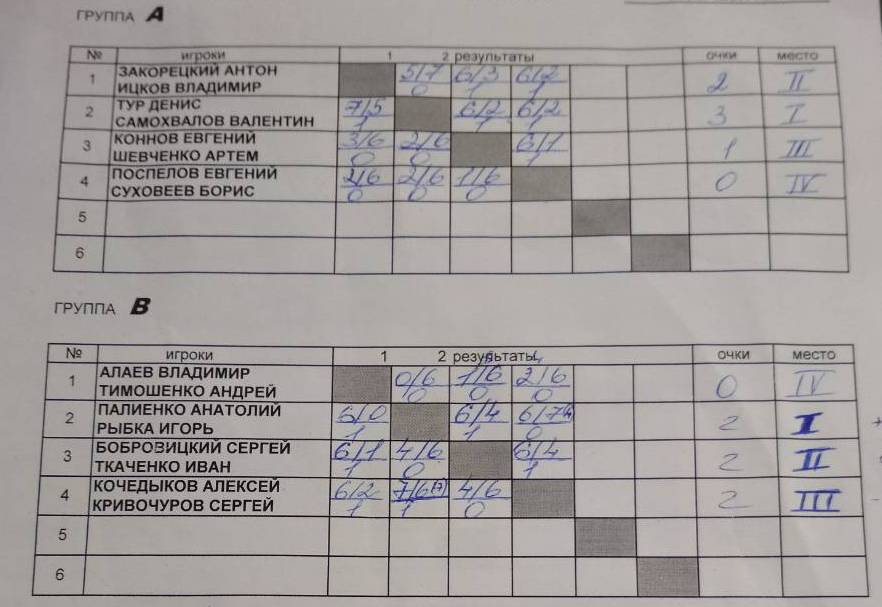 ГРУППА A
№ игроки 1 2 результаты очки место
1 ЗАКОРЕЦКИЙ АНТОН 5/7 6/3 6/2 2 II
ИЦКОВ ВЛАДИМИР 0 1 1
2 ТУР ДЕНИС 7/5 6/2 6/2 3 I
САМОХВАЛОВ ВАЛЕНТИН 1 1 1
3 КОННОВ ЕВГЕНИЙ 3/6 2/6 6/1 1 III
ШЕВЧЕНКО АРТЕМ 0 0 1
4 ПОСПЕЛОВ ЕВГЕНИЙ 2/6 2/6 1/6 0 IV
СУХОВЕЕВ БОРИС 0 0 0
5
6
ГРУППА B
№ игроки 1 2 результаты очки место
1 АЛАЕВ ВЛАДИМИР 0/6 1/6 2/6 0 IV
ТИМОШЕНКО АНДРЕЙ 0 0 0
2 ПАЛИЕНКО АНАТОЛИЙ 6/0 6/4 6/7 2 I
РЫБКА ИГОРЬ 1 1 0
3 БОБРОВИЦКИЙ СЕРГЕЙ 6/1 4/6 6/4 2 II
ТКАЧЕНКО ИВАН 1 0 1
4 КОЧЕДЫКОВ АЛЕКСЕЙ 6/2 7/6(7) 4/6 2 III
КРИВОЧУРОВ СЕРГЕЙ 1 1 0
5
6